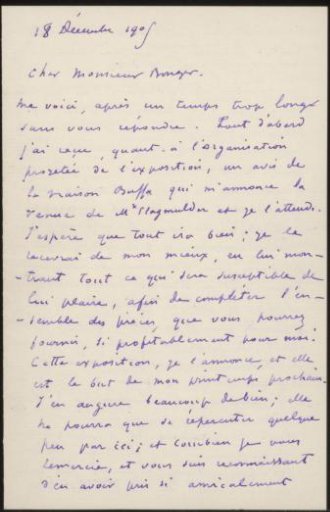 18 Décembre 1905
Cher Monsieur Bonger.
Me voici, après un temps trop long
sans vous répondre. Tout d'abord
j'ai reçu, quant à l'organisation
projetée de l'exposition, un avis de
la maison Buffa qui m'annonce la
venue de Mr et je l'attends.
J'espère que tout ira bien; je le
recevrai de mon mieux, en lui mon-
-trant tout ce qui sera susceptible de
lui plaire, afin de compléter l'en-
-semble des pièces que vous pourrez
fournir, si profitablement pour moi.
Cette exposition, je l'annonce et elle
est le but de mon printemps prochain.
J'en augure beaucoup de bien; elle
ne pourra que se répercuter quelque
peu par ici; et combien je vous
remercie, et vous suis reconnaissant
d'en avoir pris si amicalement